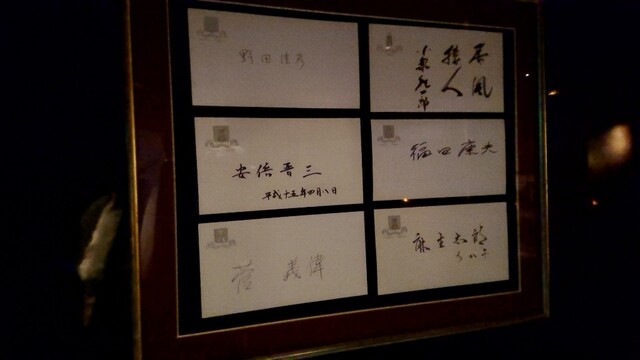 野田佳彦
春風
接人
小泉純一郎
安倍晋三
平成十五年四月八日
福田康夫
菅 義偉
麻生太郎